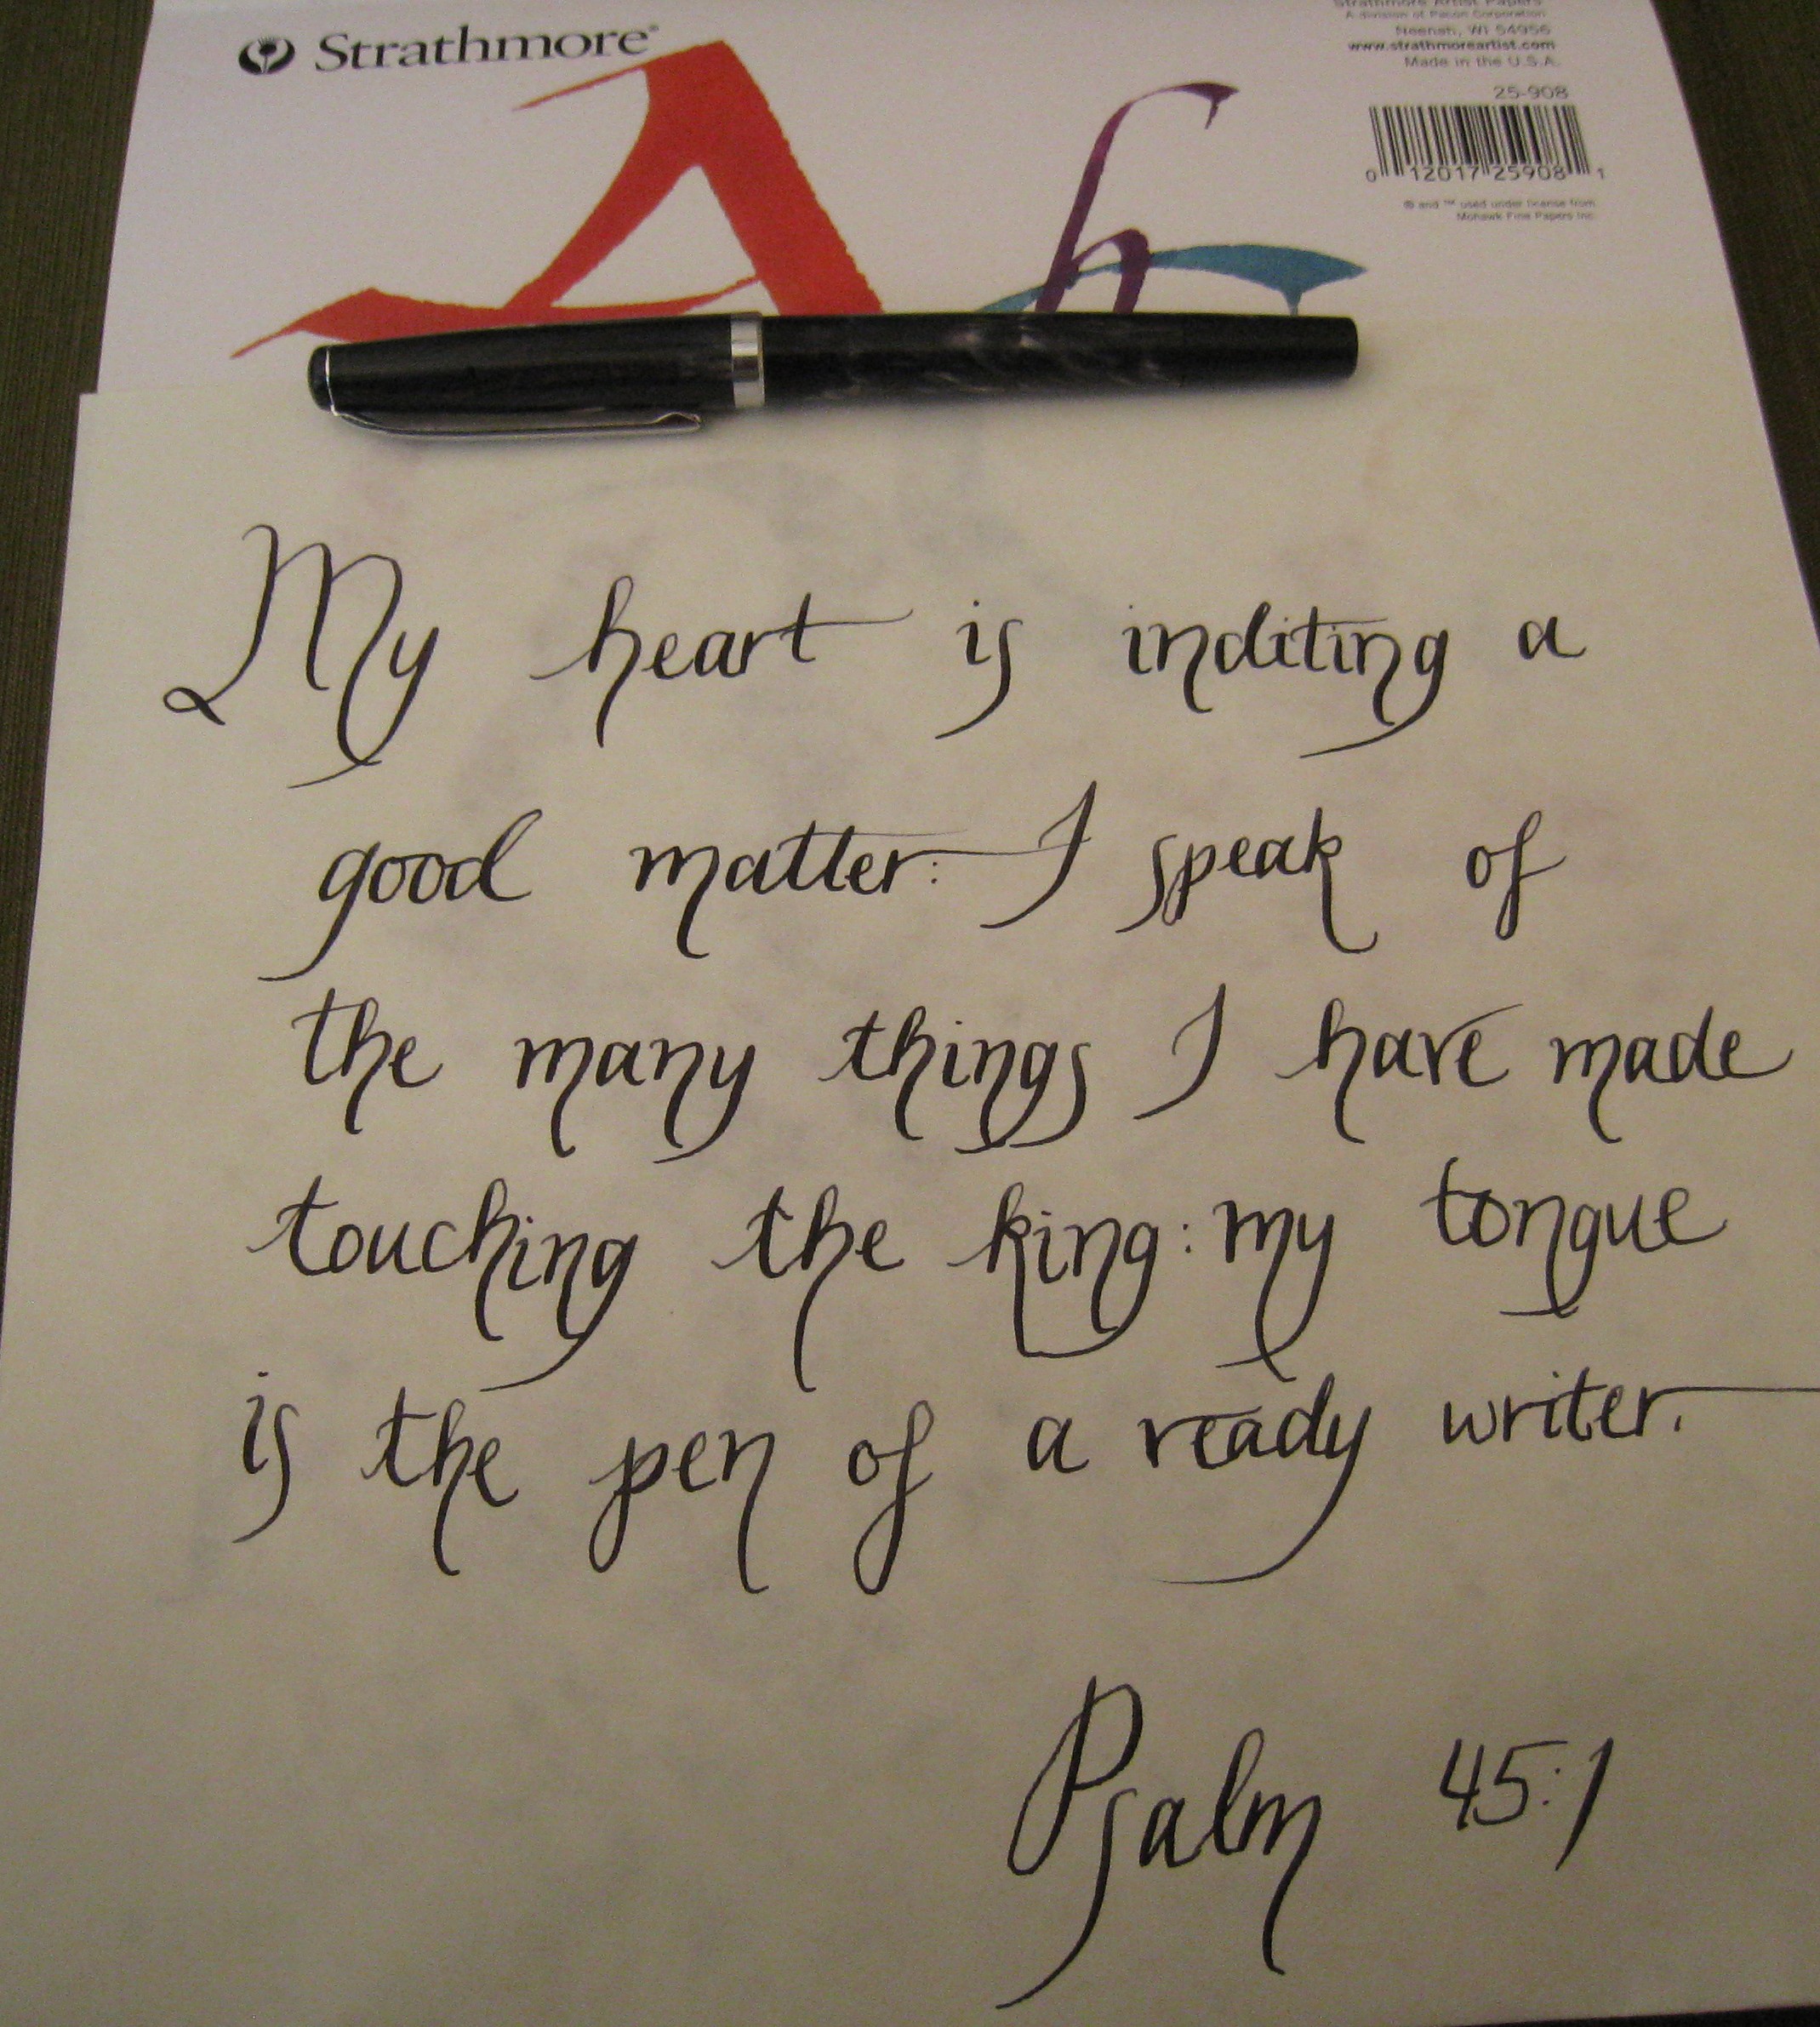 Strathmore®
Strathmore Artist Papers
A division of Pacon Corporation
Neenah, WI 54956
www.strathmoreartist.com
Made in the U.S.A.
25-908
0 12017 25908 1
® and ™ used under license from
Mohawk Fine Papers Inc.
A h
My heart is inditing a
good matter: I speak of
the many things I have made
touching the king: my tongue
is the pen of a ready writer.
Psalm 45:1